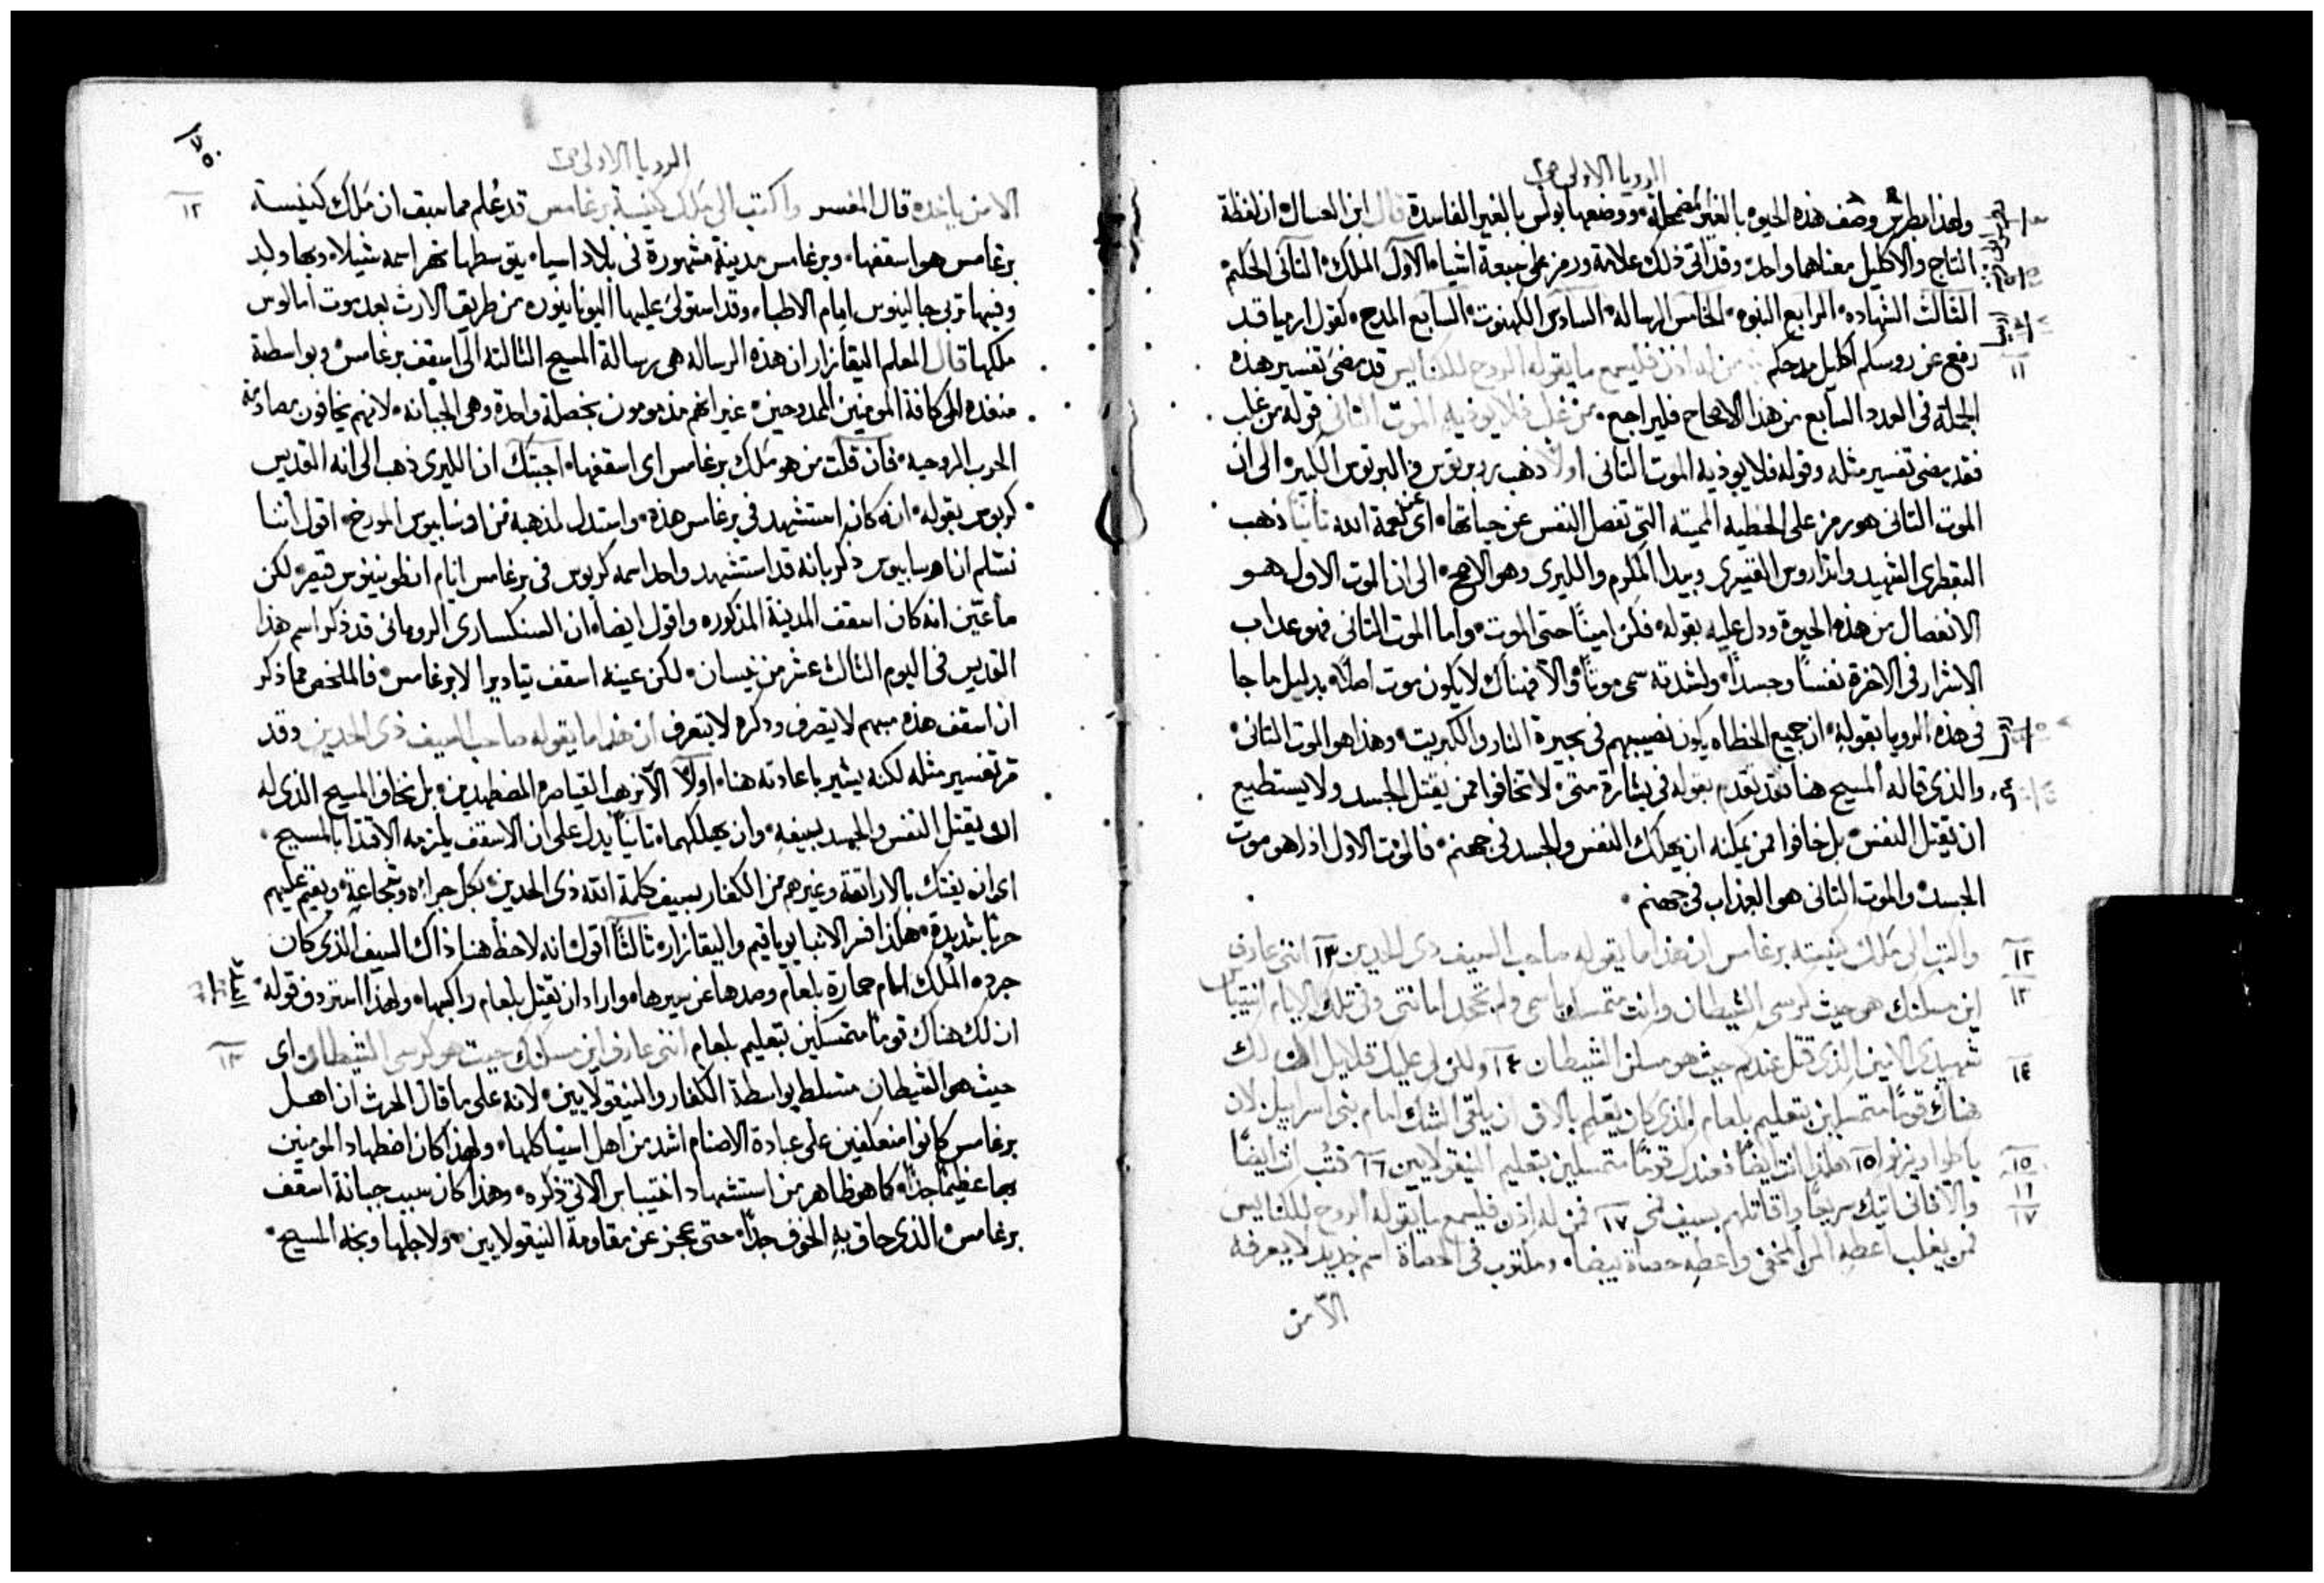 الرويا الاولى ص٢
ولهذا بطرس وصف هذه الحيوه بالغير مضمحلة ووضعها بولس بالغير الفاسدة قال ابن العسال ان لفظة
التاج والاكليل معناهما واحد وقد اتى ذلك علامة ورمز على سبعة اشيا الاول الملك الثانى الحكم
الثالث الشهاده الرابع النبوه الخامس الرساله السادس الكهنوت السابع المدح كقول ارميا قد
رفع عن روسكم اكليل مدحكم من له اذن فليسمع ما يقوله الروح للكنايس قد مضى تفسير هذه
١١
الجملة فى العدد السابع من هذا الاصحاح فليراجع من غلب فلا يوذيه الموت الثانى قوله من غلب
فقد مضى تفسير مثله وقوله فلا يوذيه الموت الثانى اولاً ذهب الى ان
الموت الثانى هو رمز على الخطيه المميته التى تفصل النفس عن حياتها اى عن نعمة الله ثانياً ذهب
الشهيد واندراوس وبيدا المكرم والليرى وهو الاصح الى ان الموت الاول هو
الانفصال من هذه الحيوة ودل عليه بقوله فكن اميناً حتى الموت واما الموت الثانى فهو عداب
الاشرار فى الاخرة نفساً وجسداً ولشدته سمى موتاً والا فهناك لا يكون موت اصلاً بدليل ما جا
فى هذه الرويا بقوله ان جميع الخطاه يكون نصيبهم فى بحيرة النار والكبريت وهذا هو الموت الثانى
والذى قاله المسيح هنا فقد تقدم بقوله فى بشارة متى لا تخافوا ممن يقتل الجسد ولا يستطيع
ان يقتل النفس بل خافوا ممن يمكنه ان يهلك النفس والجسد فى جهنم فالموت الاول اذاً هو موت
الجسد والموت الثانى هو العذاب فى جهنم
١٢
واكتب الى ملك كنيسة برغامس ان هذا ما يقوله صاحب السيف ذى الحدين ١٣ اننى عارف
١٣
اين مسكنك هو حيث كرسى الشيطان وانت متمسك باسمى ولم تجحد امانتى وفى تلك الايام انتيباس
١٤
شهيدى الامين الذى قتل عندكم حيث هو مسكن الشيطان ١٤ ولكن لى عليك قلايل ان لك
هناك قوماً متمسكين بتعليم بلعام الذى كان يعلم بالاق ان يلقى الشك امام بنى اسراييل لان
١٥
ياكلوا ويزنوا ١٥ هكذا انت ايضاً فعندك قوماً متمسكين بتعليم النيقولايين ١٦ فتُب انت ايضاً
١٦
١٧
والا فانى اتيك سريعاً واقاتلهم بسيف فمى ١٧ فمن له اذن فليسمع ما يقوله الروح للكنايس
فمن يغلب اعطه المن المخفى واعطه حصاة بيضا ومكتوب فى الحصاة اسم جديد لا يعرفه
الا من
٧٥
الرويا الاولى ص٢
١٢
الا من ياخذه قال المفسر واكتب الى ملك كنيسة برغامس قد عُلم مما سبق ان ملك كنيسة
برغامس هو اسقفها وبرغامس مدينة مشهورة فى بلاد اسيا يتوسطها نهر اسمه شيلا وبها ولد
وفيها تربى جالينوس امام الاطبا وقد استولى عليها اليونانيون من طريق الارث بعد موت اتالوس
ملكها قال المعلم اليقازار ان هذه الرساله هى رسالة المسيح الثالثه الى اسقف برغامس وبواسطة
منفده الى كافة المومنين الممدوحين غير انهم مذمومون بخصلة واحدة وهى الجبانه لانهم يخافون مصادمة
الحرب الروحيه فان قلت من هو ملك برغامس اى اسقفها اجبتك ان الليرى ذهب الى انه القديس
كربوس بقوله انه كان استشهد فى برغامس هذه واستدل لمذهبه من اوسابيوس المورخ اقول اننا
نسلم ان اوسابيوس ذكر بانه قد استشهد واحد اسمه كربوس فى برغامس ايام انطونينوس قيصر لكن
ما عيّن انه كان اسقف المدينة المذكوره واقول ايضاً ان السنكسارى الرومانى قد ذكر اسم هذا
القديس فى اليوم الثالث عشر من نيسان لكن عينه اسقف تياديرا لا برغامس فالملخص مما ذكر
ان اسقف هذه مبهم لا يتصرف ونكره لا يتعرف ان هذا ما يقوله صاحب السيف ذى الحدين وقد
مر تفسير مثله لكنه يشير باعادته هنا اولاً الا نرهب القياصره المضطهدين بل نخاف المسيح الذى له
ان يقتل النفس والجسد بسيفه وان يهلكهما ثانياً يدل على ان الاسقف يلزمه الاقتدا بالمسيح
اى ان يفتك بالاراتقة وغيرهم من الكفار بسيف كلمة الله ذى الحدين بكل جراه وشجاعة ويقيم عليهم
حرباً شديدة هكذا فسر الانبا يوياقيم واليقازار ثالثاً اقول انه لاحظ هنا ذاك السيف الذى كان
جرده الملك امام حمارة بلعام وصدها عن سيرها واراد ان يقتل بلعام راكبها ولهذا استردف قوله
١٣
ان لك هناك قوماً متمسكين بتعليم بلعام اننى عارف اين مسكنك حيث هو كرسى الشيطان اى
حيث هو الشيطان متسلط بواسطة الكفار والنيقولايين لانه على ما قال الحرث ان اهل
برغامس كانوا منعكفين على عبادة الاصنام اشد من اهل اسيا كلها ولهذا كان اضطهاد المومنين
بها عظيماً جداً كما هو ظاهر من استشهاد انتيباس الاتى ذكره وهذا كان سبب جبانة اسقف
برغامس الذى حاق به الخوف جداً حتى عجز عن مقاومة النيقولايين ولاجلها وبخه المسيح